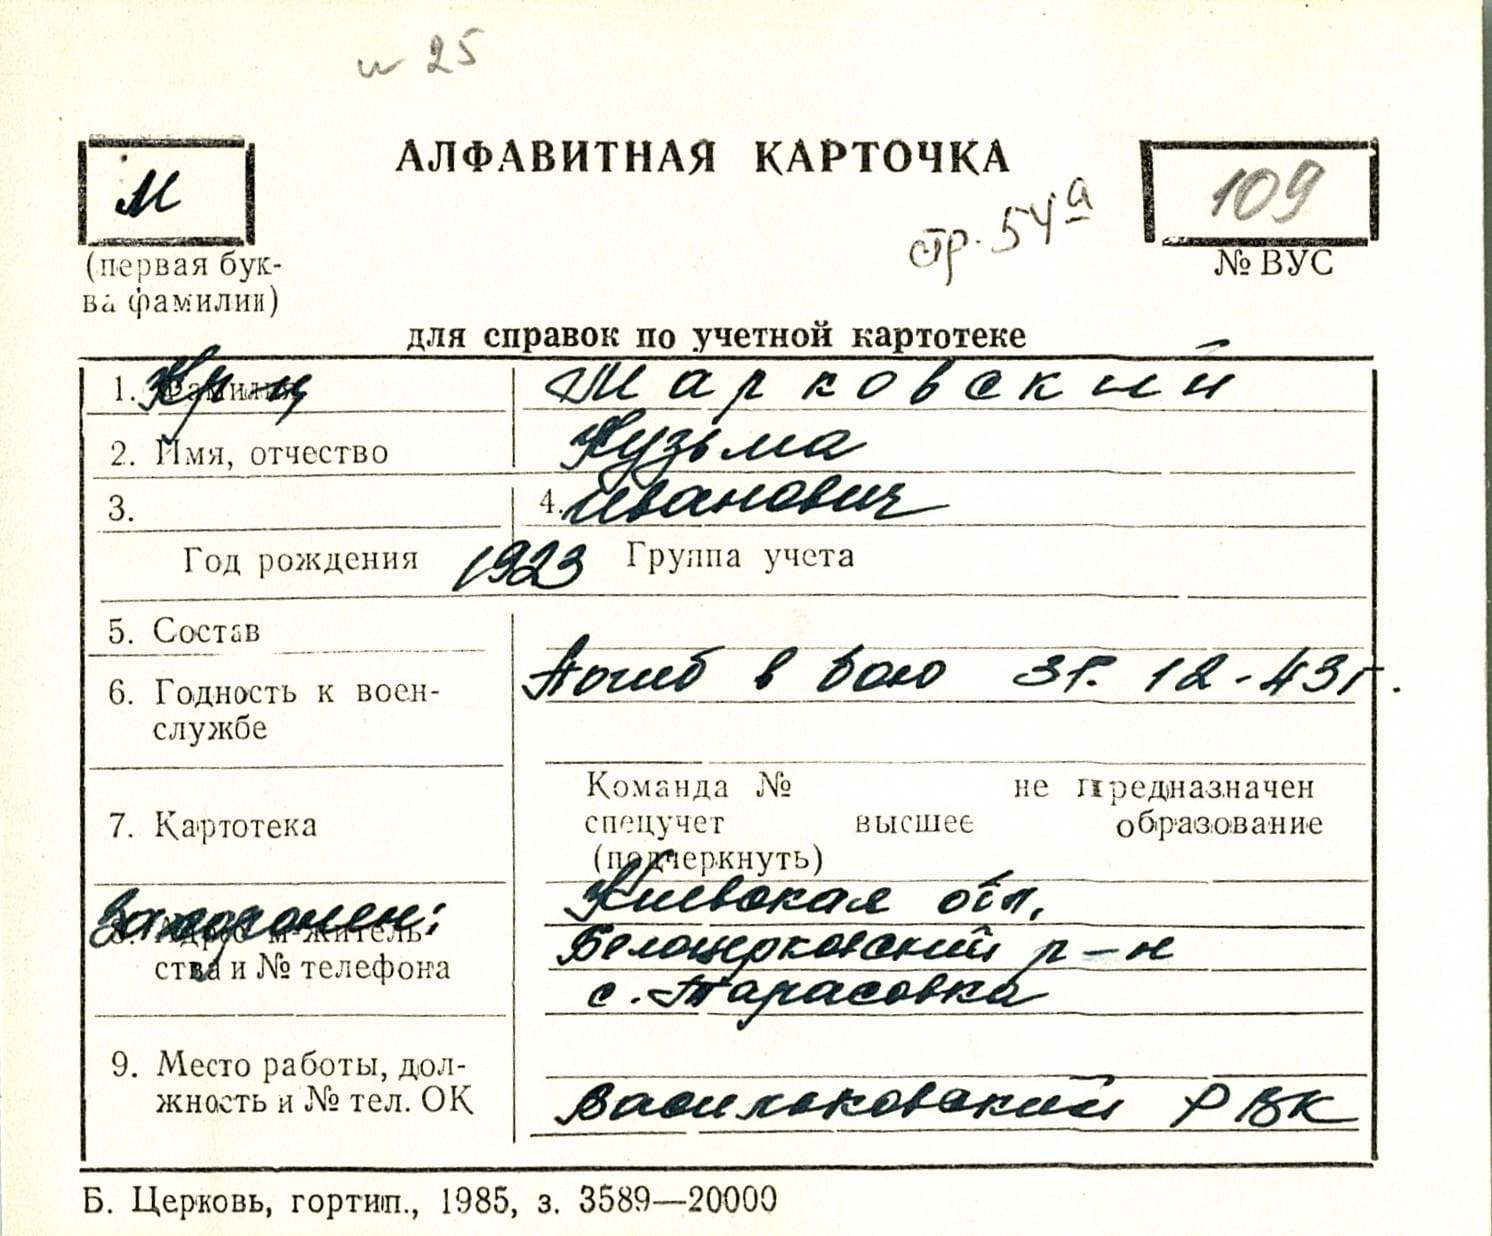 и 25
АЛФАВИТНАЯ КАРТОЧКА
М
109
стр. 54а
(первая бук-
ва фамилии)
№ ВУС
для справок по учетной картотеке
1. Фамилия Марковский
2. Имя, отчество Кузьма
3. 4. Иванович
Год рождения 1923 Группа учета
5. Состав
Погиб в бою 31. 12-43г.
6. Годность к воен-
службе
Команда № не предназначен
7. Картотека спецучет высшее образование
(подчеркнуть)
Киевская обл.
Захоронен:
8. Адрес м-житель-
Белоцерковский р-н
ства и № телефона
с. Тарасовка
9. Место работы, дол-
жность и № тел. ОК
Васильковский РВК
Б. Церковь, гортип., 1985, з. 3589—20000